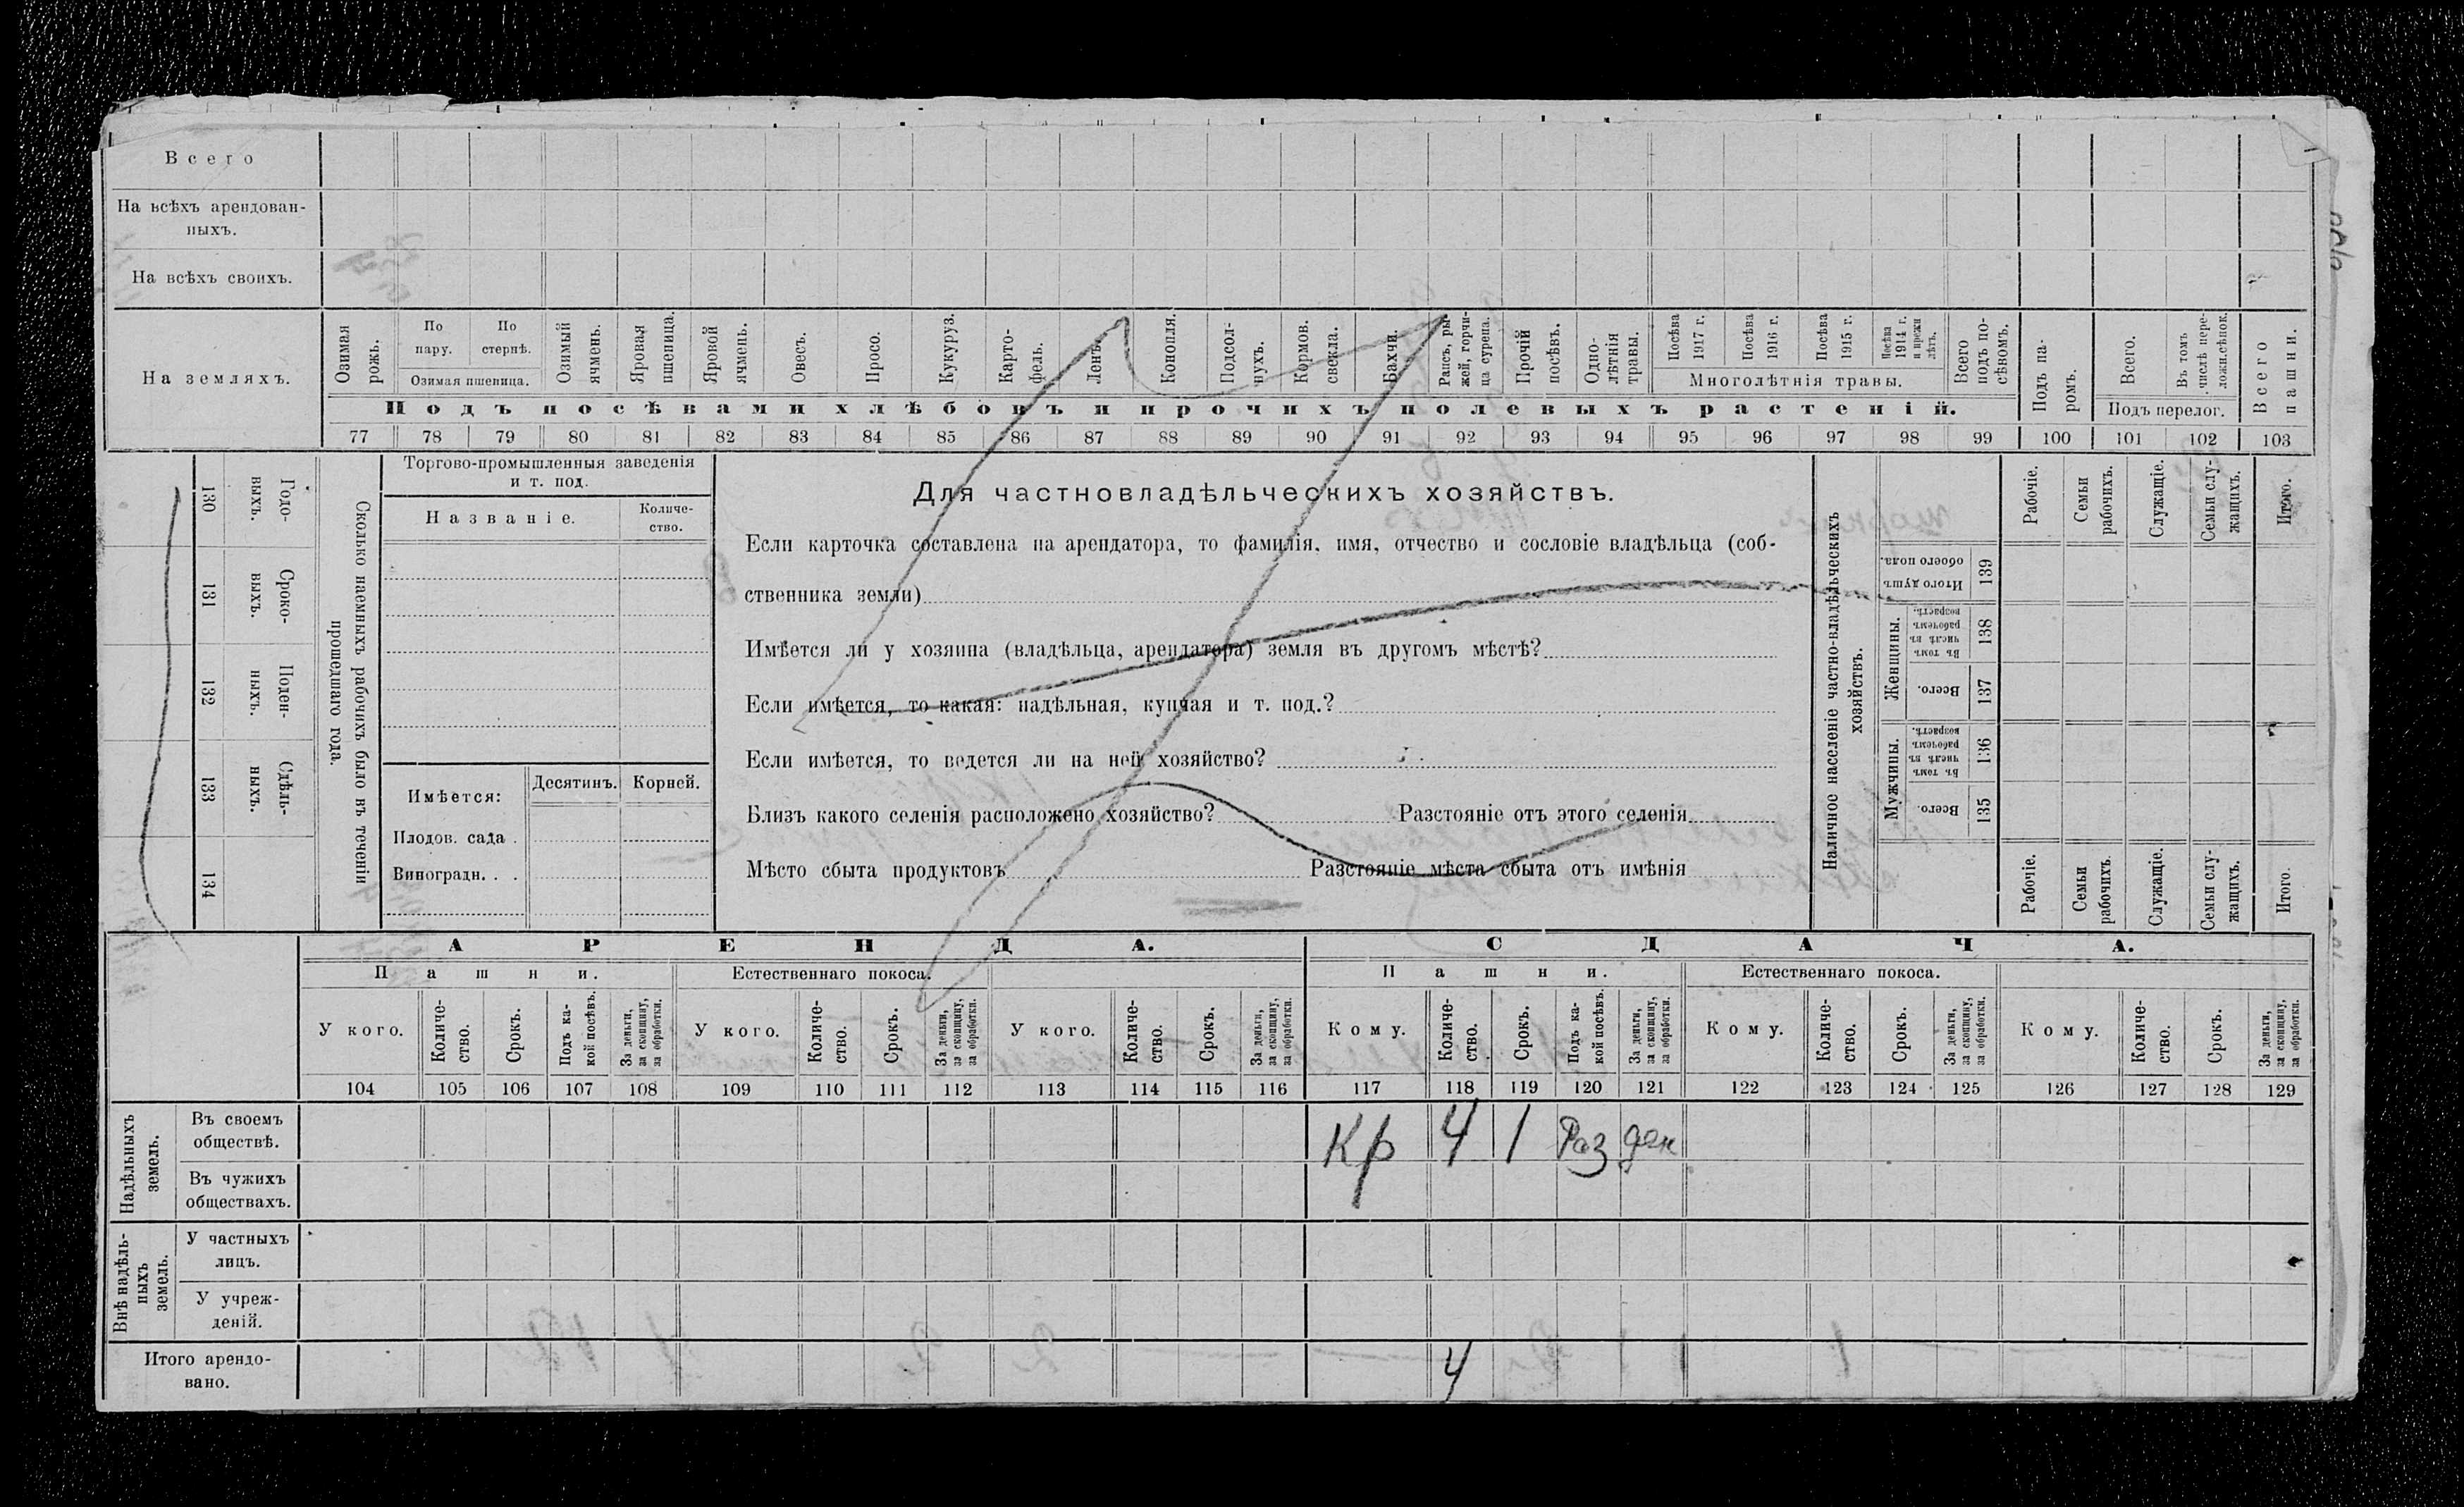 Всего
На всѣхъ арендован-
ныхъ.
На всѣхъ своихъ.
На земляхъ.
Озимая рожь.
По пару.
По стернѣ.
Озимая пшеница.
Озимый ячмень.
Яровая пшеница.
Яровой ячмень.
Овесъ.
Просо.
Кукуруз.
Карто-
фель.
Ленъ.
Конопля.
Подсол-
нухъ.
Кормов. свекла.
Бахчи.
Рапсъ, ры-
жей, горчи-
ца сурепа.
Прочій посѣвъ.
Одно-
лѣтнія
травы.
Посѣва 1917 г.
Посѣва 1916 г.
Посѣва 1915 г.
Посѣва 1914 г. и прежн лѣтъ.
Многолѣтнія травы.
Всего подъ по-
сѣвомъ.
Подъ посѣвами хлѣбовъ и прочихъ полевыхъ растеній.
Подъ па-
ромъ.
Всего.
Въ томъ числѣ пере-
ложн.сѣнок.
Подъ перелог.
Всего пашни.
77 78 79 80 81 82 83 84 85 86 87 88 89 90 91 92 93 94 95 96 97 98 99 100 101 102 103
130 Годо-
выхъ.
131 Сроко-
выхъ.
132 Поден-
ныхъ.
133 Сдѣль-
ныхъ.
134
Сколько наемныхъ рабочихъ было въ теченіи
прошедшаго года.
Торгово-промышленныя заведенія
и т. под.
Названіе.
Количе-
ство.
Имѣется:
Десятинъ.
Корней.
Плодов. сада .
Виноградн. . .
Для частновладѣльческихъ хозяйствъ.
Если карточка составлена на арендатора, то фамилія, имя, отчество и сословіе владѣльца (соб-
ственника земли)
Имѣется ли у хозяина (владѣльца, арендатора) земля въ другомъ мѣстѣ?
Если имѣется, то какая: надѣльная, купчая и т. под.?
Если имѣется, то ведется ли на ней хозяйство?
Близъ какого селенія расположено хозяйство? Разстояніе отъ этого селенія
Мѣсто сбыта продуктовъ Разстояніе мѣста сбыта отъ имѣнія
Наличное населеніе частно-владѣльческихъ
хозяйствъ.
Рабочіе.
Семьи рабочихъ.
Служащіе.
Семьи слу-
жащихъ.
Итого.
Итого душъ обоего пола. 139
Женщины.
Въ томъ числѣ въ рабочемъ возрастѣ. 138
Всего. 137
Мужчины.
Въ томъ числѣ въ рабочемъ возрастѣ. 136
Всего. 135
Рабочіе.
Семьи рабочихъ.
Служащіе.
Семьи слу-
жащихъ.
Итого.
АРЕНДА.
СДАЧА.
Пашни.
Естественнаго покоса.
Пашни.
Естественнаго покоса.
У кого.
Количе-
ство.
Срокъ.
Подъ ка-
кой посѣвъ.
За деньги,
за скопщину,
за обработки.
У кого.
Количе-
ство.
Срокъ.
За деньги,
за скопщину,
за обработки.
У кого.
Количе-
ство.
Срокъ.
За деньги,
за скопщину,
за обработки.
Кому.
Количе-
ство.
Срокъ.
Подъ ка-
кой посѣвъ.
За деньги,
за скопщину,
за обработки.
Кому.
Количе-
ство.
Срокъ.
За деньги,
за скопщину,
за обработки.
Кому.
Количе-
ство.
Срокъ.
За деньги,
за скопщину,
за обработки.
104 105 106 107 108 109 110 111 112 113 114 115 116 117 118 119 120 121 122 123 124 125 126 127 128 129
Надѣльныхъ
земель.
Въ своемъ
обществѣ.
Кр 4 1 Раз ден
Въ чужихъ
обществахъ.
Внѣ надѣль-
ныхъ
земель.
У частныхъ
лицъ.
У учреж-
деній.
Итого арендо-
вано.
4